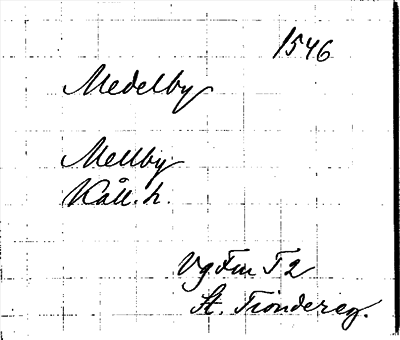 1546
Medelby
Mellby
Kåll. h.
Vg Fm T 2
St. Tiondereg.